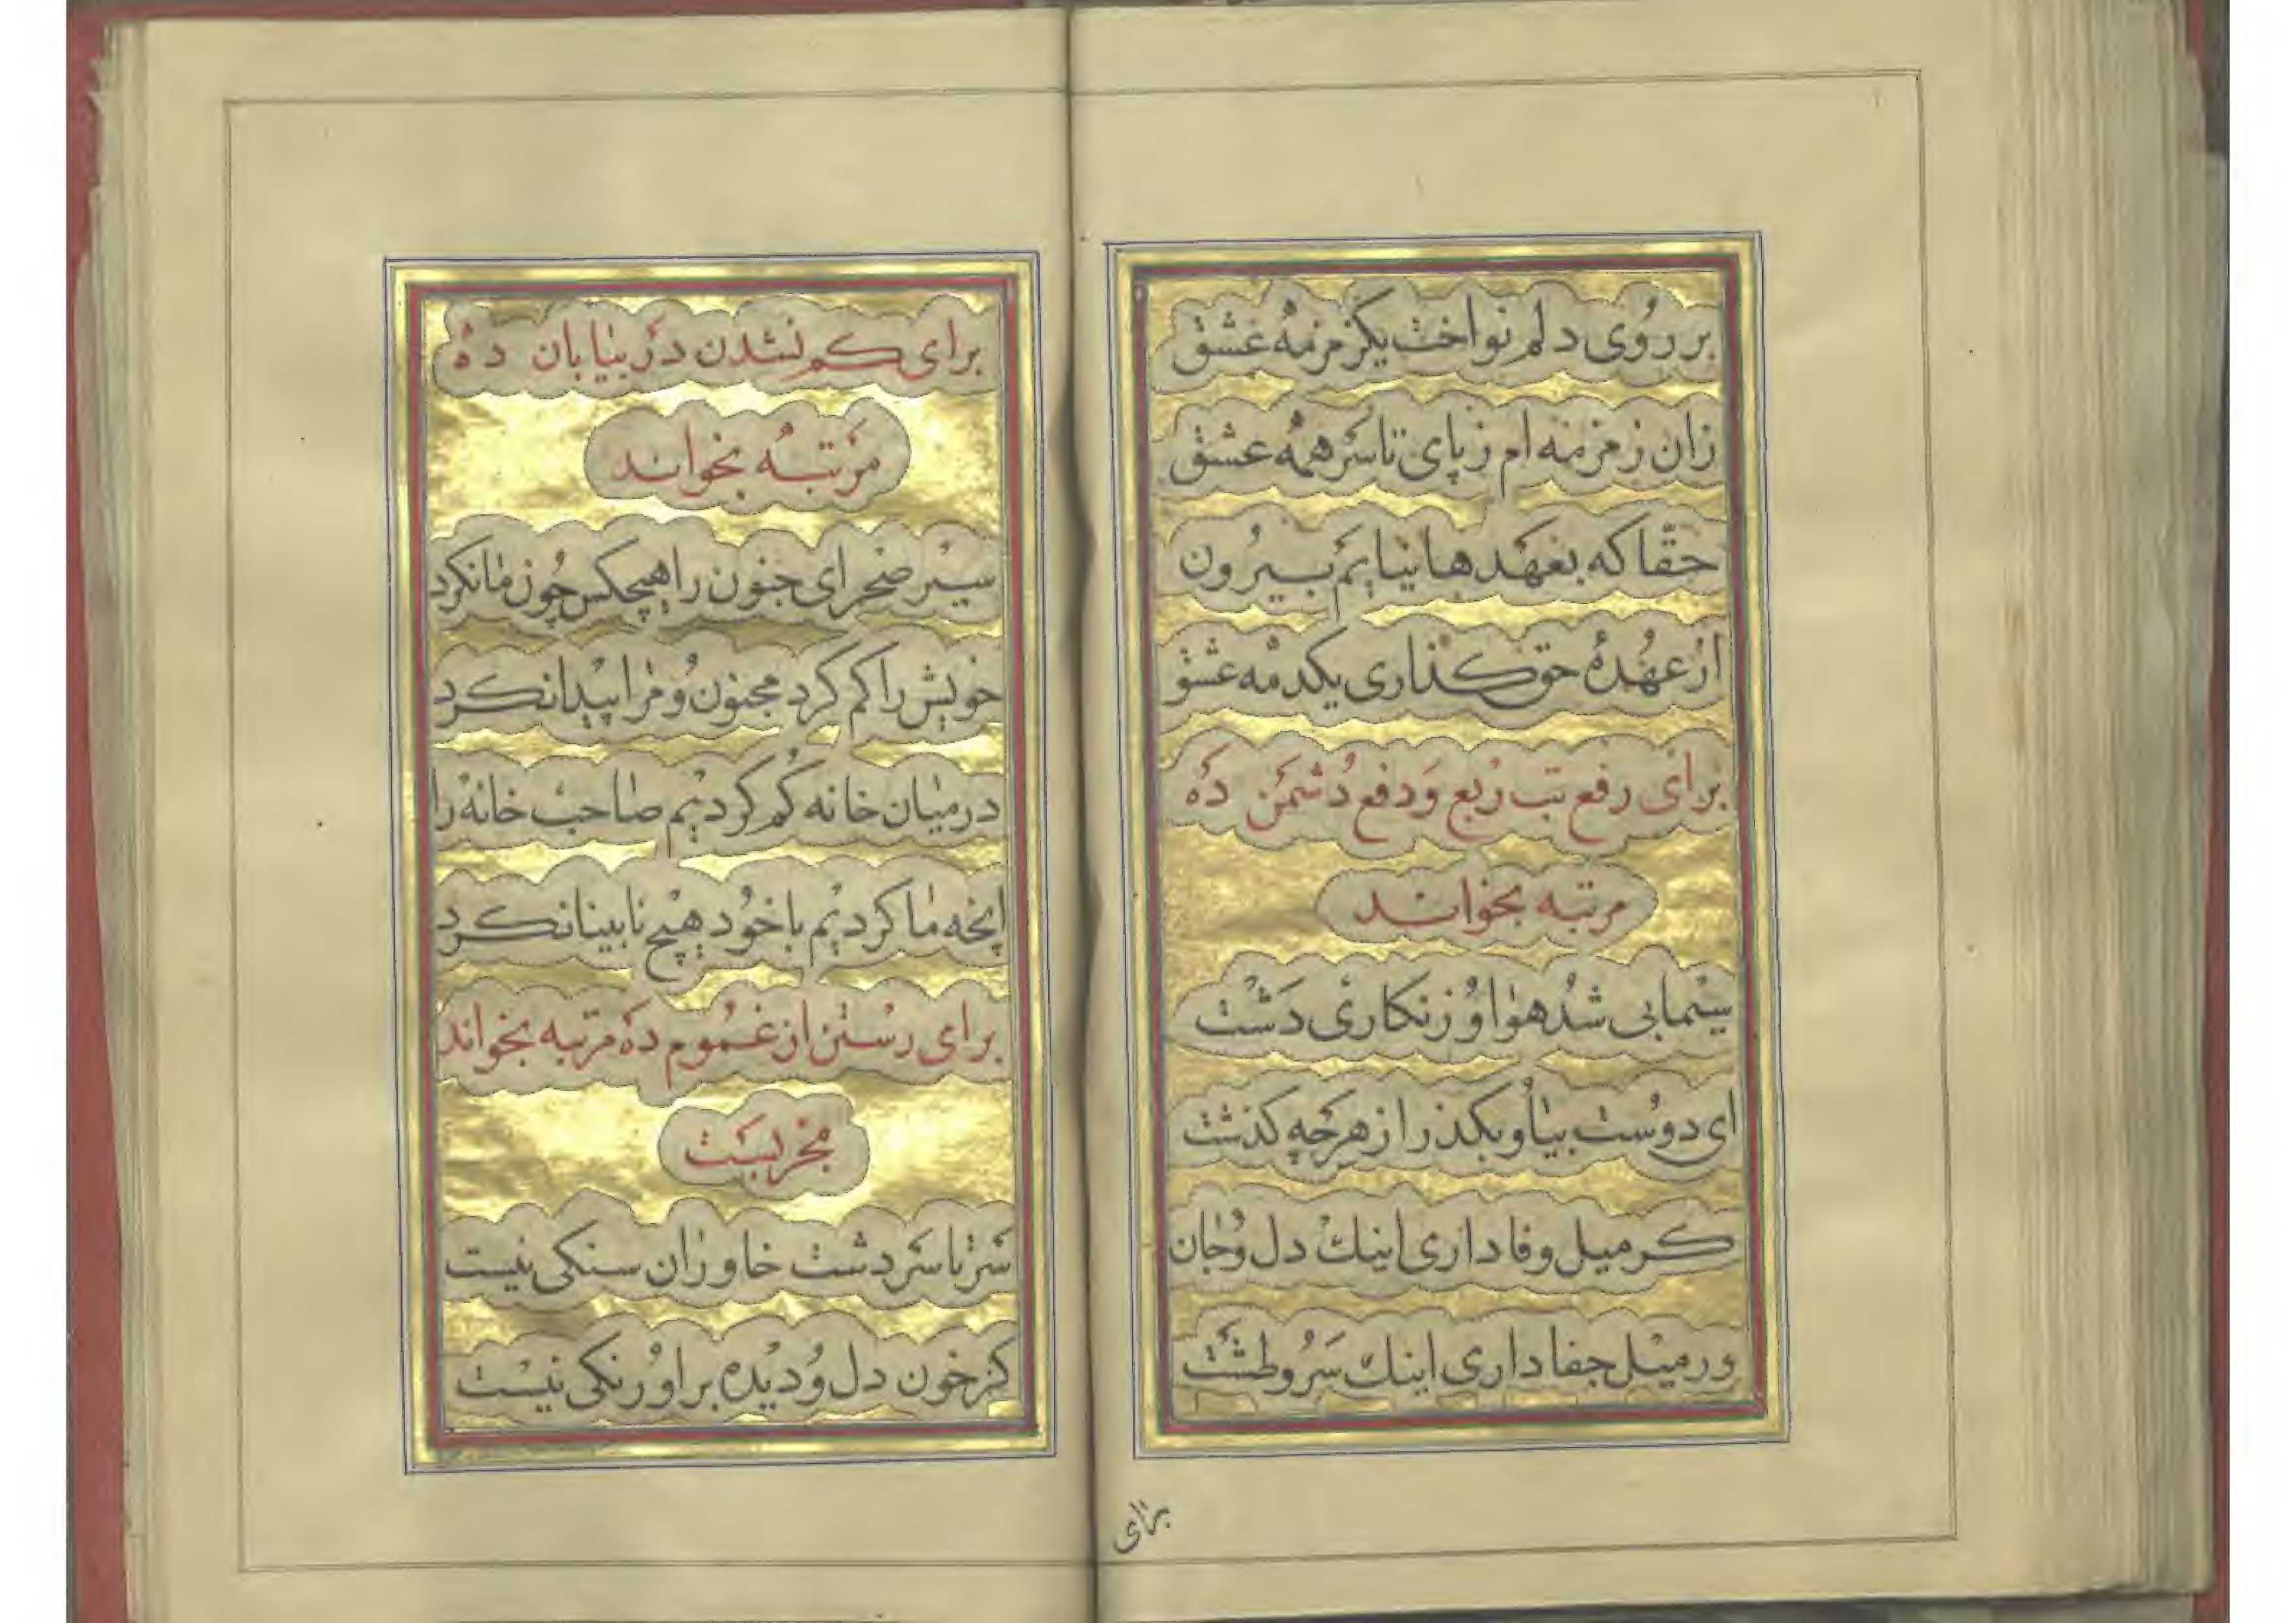 بر روی دلم نواخت یکزمزمه عشق
زان زمزمه ام زپای تا سر همه عشق
حقّا که بعهدها نیایم بیرون
از عهدهٔ حق کذاری یکدمه عشق
برای رفع تب ربع و دفع دشمن ده
مرتبه بخواند
سیمابی شد هوا و زنکاری دشت
ای دوست بیا و بکذر از هرچه کذشت
کر میل وفا داری اینك دل و جان
ور میل جفا داری اینك سر و طشت
برای
برای کم نشدن در بیابان ده
مرتبه بخواند
سیر صحرای جنون را هیچکس چون ما نکرد
خویش را کم کرد مجنون و مرا پیدا نکرد
در میان خانه کم کردیم صاحب خانه را
اینچه ما کردیم با خود هیچ نابینا نکرد
برای رستن از غموم ده مرتبه بخواند
مجربست
سرتاسر دشت خاوران سنکی نیست
کز خون دل و دیده بر او رنکی نیست